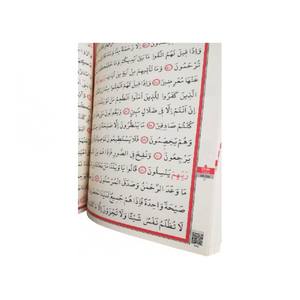 إِلَّا رَحْمَةً مِنَّا
وَإِذَا قِيلَ لَهُمُ اتَّقُوا مَا بَيْنَ أَيْدِيكُمْ
تُرْحَمُونَ وَمَا تَأْتِيهِمْ مِنْ آيَةٍ مِنْ
عَنْهَا مُعْرِضِينَ وَإِذَا قِيلَ لَهُمْ أَنْفِقُوا
الَّذِينَ كَفَرُوا لِلَّذِينَ آمَنُوا أَنُطْعِمُ
إِنْ أَنْتُمْ إِلَّا فِي ضَلَالٍ مُبِينٍ
كُنْتُمْ صَادِقِينَ مَا يَنْظُرُونَ إِلَّا
وَهُمْ يَخِصِّمُونَ فَلَا يَسْتَطِيعُونَ
يَرْجِعُونَ وَنُفِخَ فِي الصُّورِ فَإِذَا
رَبِّهِمْ يَنْسِلُونَ قَالُوا يَا وَيْلَنَا
مَا وَعَدَ الرَّحْمٰنُ وَصَدَقَ الْمُرْسَلُونَ
صَيْحَةً وَاحِدَةً فَإِذَا هُمْ جَمِيعٌ
لَا تُظْلَمُ نَفْسٌ شَيْئًا وَلَا تُجْزَوْنَ